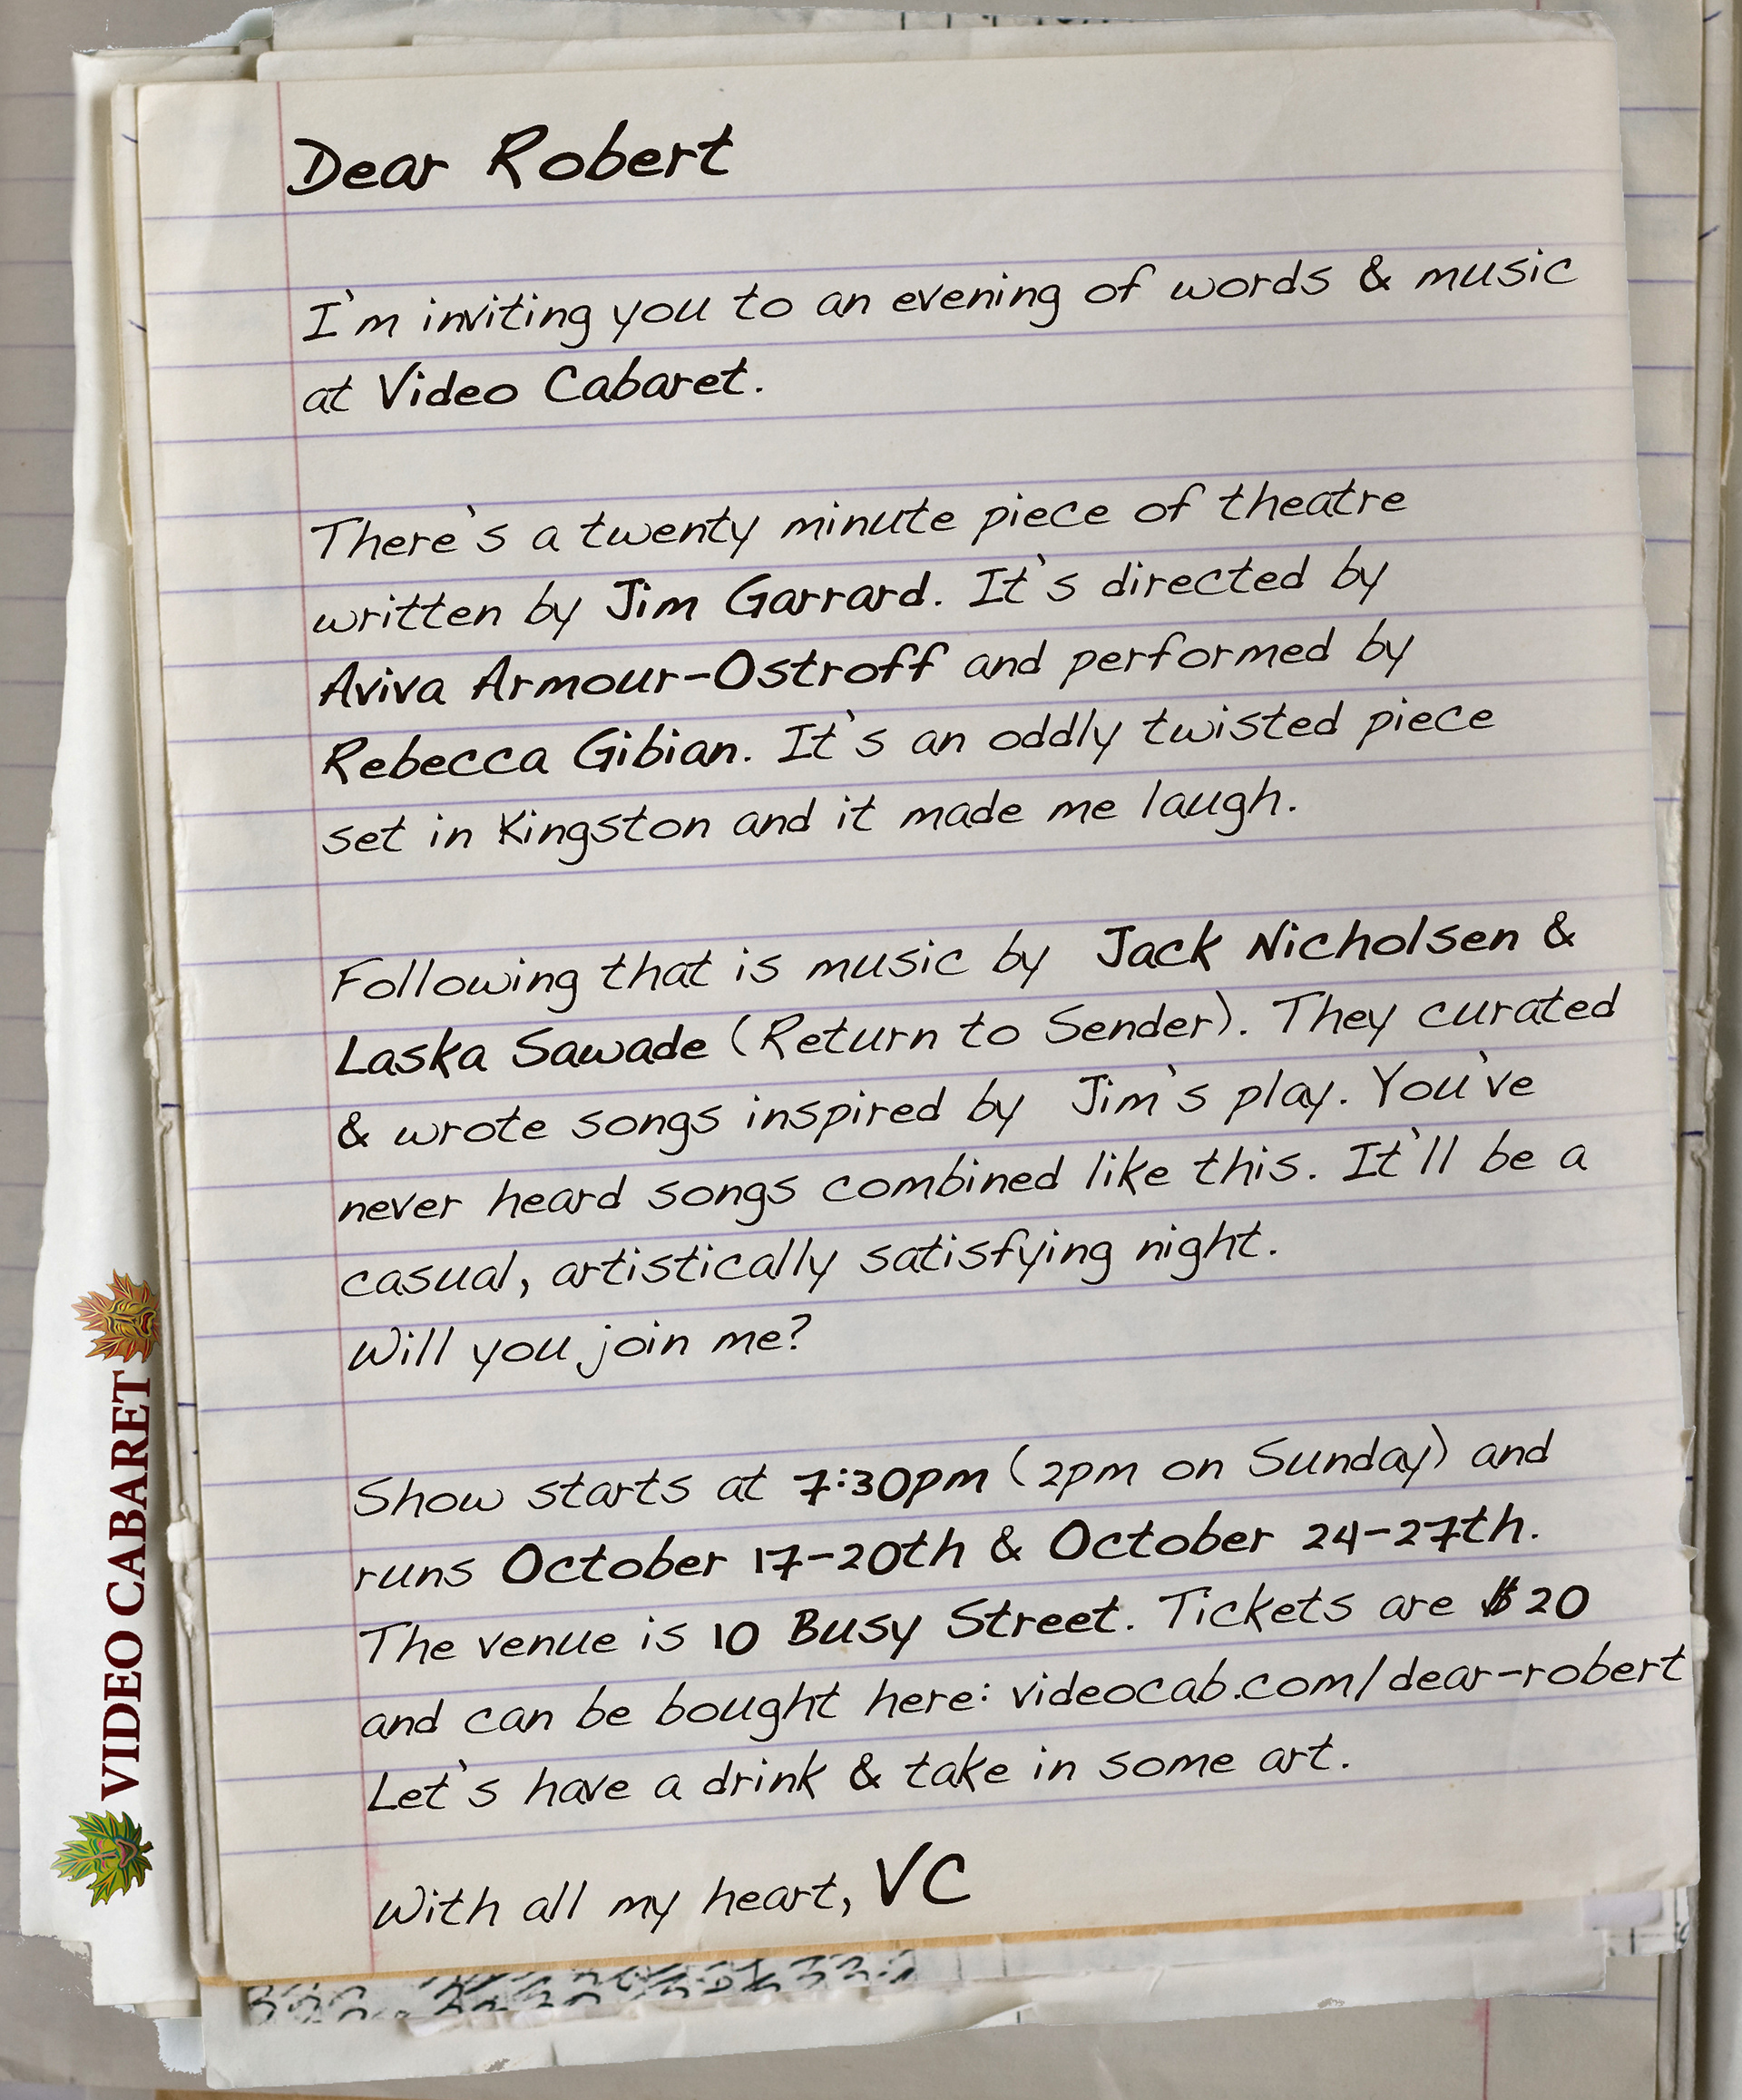 Dear Robert
I'm inviting you to an evening of words & music
at Video Cabaret.
There's a twenty minute piece of theatre
written by Jim Garrard. It's directed by
Aviva Armour-Ostroff and performed by
Rebecca Gibian. It's an oddly twisted piece
set in Kingston and it made me laugh.
Following that is music by Jack Nicholsen &
Laska Sawade (Return to Sender). They curated
& wrote songs inspired by Jim's play. You've
never heard songs combined like this. It'll be a
casual, artistically satisfying night.
Will you join me?
Show starts at 7:30pm (2pm on Sunday) and
runs October 17-20th & October 24-27th.
The venue is 10 Busy Street. Tickets are $20
and can be bought here: videocab.com/dear-robert
Let's have a drink & take in some art.
With all my heart, VC
VIDEO CABARET